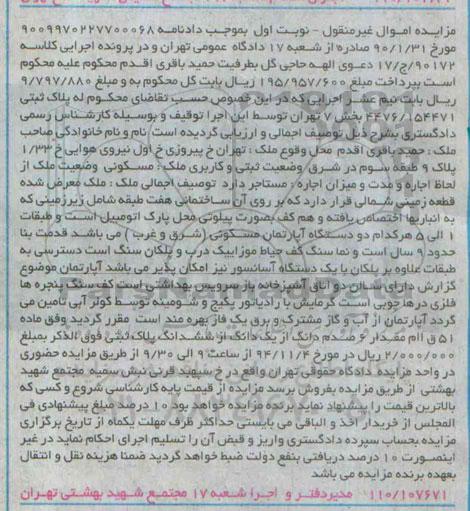 مزایده اموال غیرمنقول - نوبت اول بموجب دادنامه ۹۰۰۹۹۷۰۲۲۷۷۰۰۰۶۸
مورخ ۹۰/۱/۳۱ صادره از شعبه ۱۷ دادگاه عمومی تهران و در پرونده اجرایی کلاسه
۹۰۱۷۲/ج/۱۷ دعوی الهه حاجی گل بطرفیت حمید باقری اقدم محکوم علیه محکوم
است بپرداخت مبلغ ۱۹۵/۹۵۷/۶۰۰ ریال بابت کل محکوم به و مبلغ ۹/۷۹۷/۸۸۰
ریال بابت نیم عشر اجرایی که در این خصوص حسب تقاضای محکوم له پلاک ثبتی
۴۴۷۶/۱۵۴۴۷۱ بخش ۷ تهران توسط این اجرا توقیف و بوسیله کارشناس رسمی
دادگستری بشرح ذیل توصیف اجمالی و ارزیابی گردیده است نام و نام خانوادگی صاحب
ملک : حمید باقری اقدم محل وقوع ملک : تهران خ پیروزی خ اول نیروی هوایی خ ۱/۳۳
پلاک ۹ طبقه سوم در شرق وضعیت ثبتی و کاربری ملک : مسکونی وضعیت ملک از
لحاظ اجاره و مدت و میزان اجاره : مستاجر دارد توصیف اجمالی ملک : ملک معرض شده
قطعه زمینی شمالی قرار دارد که بر روی آن ساختمانی هفت طبقه شامل زیرزمینی که
به انباریها اختصاص یافته و هم کف بصورت پیلوتی محل پارک اتومبیل است و طبقات
۱ الی ۵ هرکدام دو دستگاه آپارتمان مسکونی (شرق و غرب) می باشد قدمت بنا
حدود ۹ سال است و نما سنگ کف حیاط موزاییک درب و پلکان سنگ است دسترسی به
طبقات علاوه بر پلکان با یک دستگاه آسانسور نیز امکان پذیر می باشد آپارتمان موضوع
گزارش دارای سالن دو اتاق آشپزخانه باز سرویس بهداشتی است کف سنگ پنجره ها
فلزی در ها چوبی است گرمایش با رادیاتور پکیج و شومینه توسط کولر آبی تامین می
گردد آپارتمان از آب و گاز مشترک و برق یک فاز بهره مند است مقرر گردید وفق ماده
۵۱ ق اام مقدار ۶ صدم دانگ از یک دانگ از ششدانگ پلاک ثبتی فوق الذکر بمبلغ
۲/۰۰۰/۰۰۰ ریال در مورخ ۹۴/۱۱/۴ از ساعت ۹ الی ۹/۳۰ از طریق مزایده حضوری
در واحد مزایده دادگاه حقوقی تهران واقع در خ سپهبد قرنی نبش سمیه مجتمع شهید
بهشتی از طریق مزایده بفروش برسد مزایده از قیمت پایه کارشناسی شروع و کسی که
بالاترین قیمت را پیشنهاد نماید برنده مزایده خواهد بود ۱۰ درصد مبلغ پیشنهادی فی
المجلس از خریدار اخذ و الباقی می بایستی حداکثر ظرف مهلت یکماه از تاریخ برگزاری
مزایده بحساب سپرده دادگستری واریز و قبض آن را تسلیم اجرای احکام نماید در غیر
اینصورت ۱۰ درصد دریافتی بنفع دولت ضبط خواهد گردید ضمنا هزینه نقل و انتقال
بعهده برنده مزایده می باشد
۱۱۰/۱۰۷۶۷۱ مدیردفتر و اجرا شعبه ۱۷ مجتمع شهید بهشتی تهران